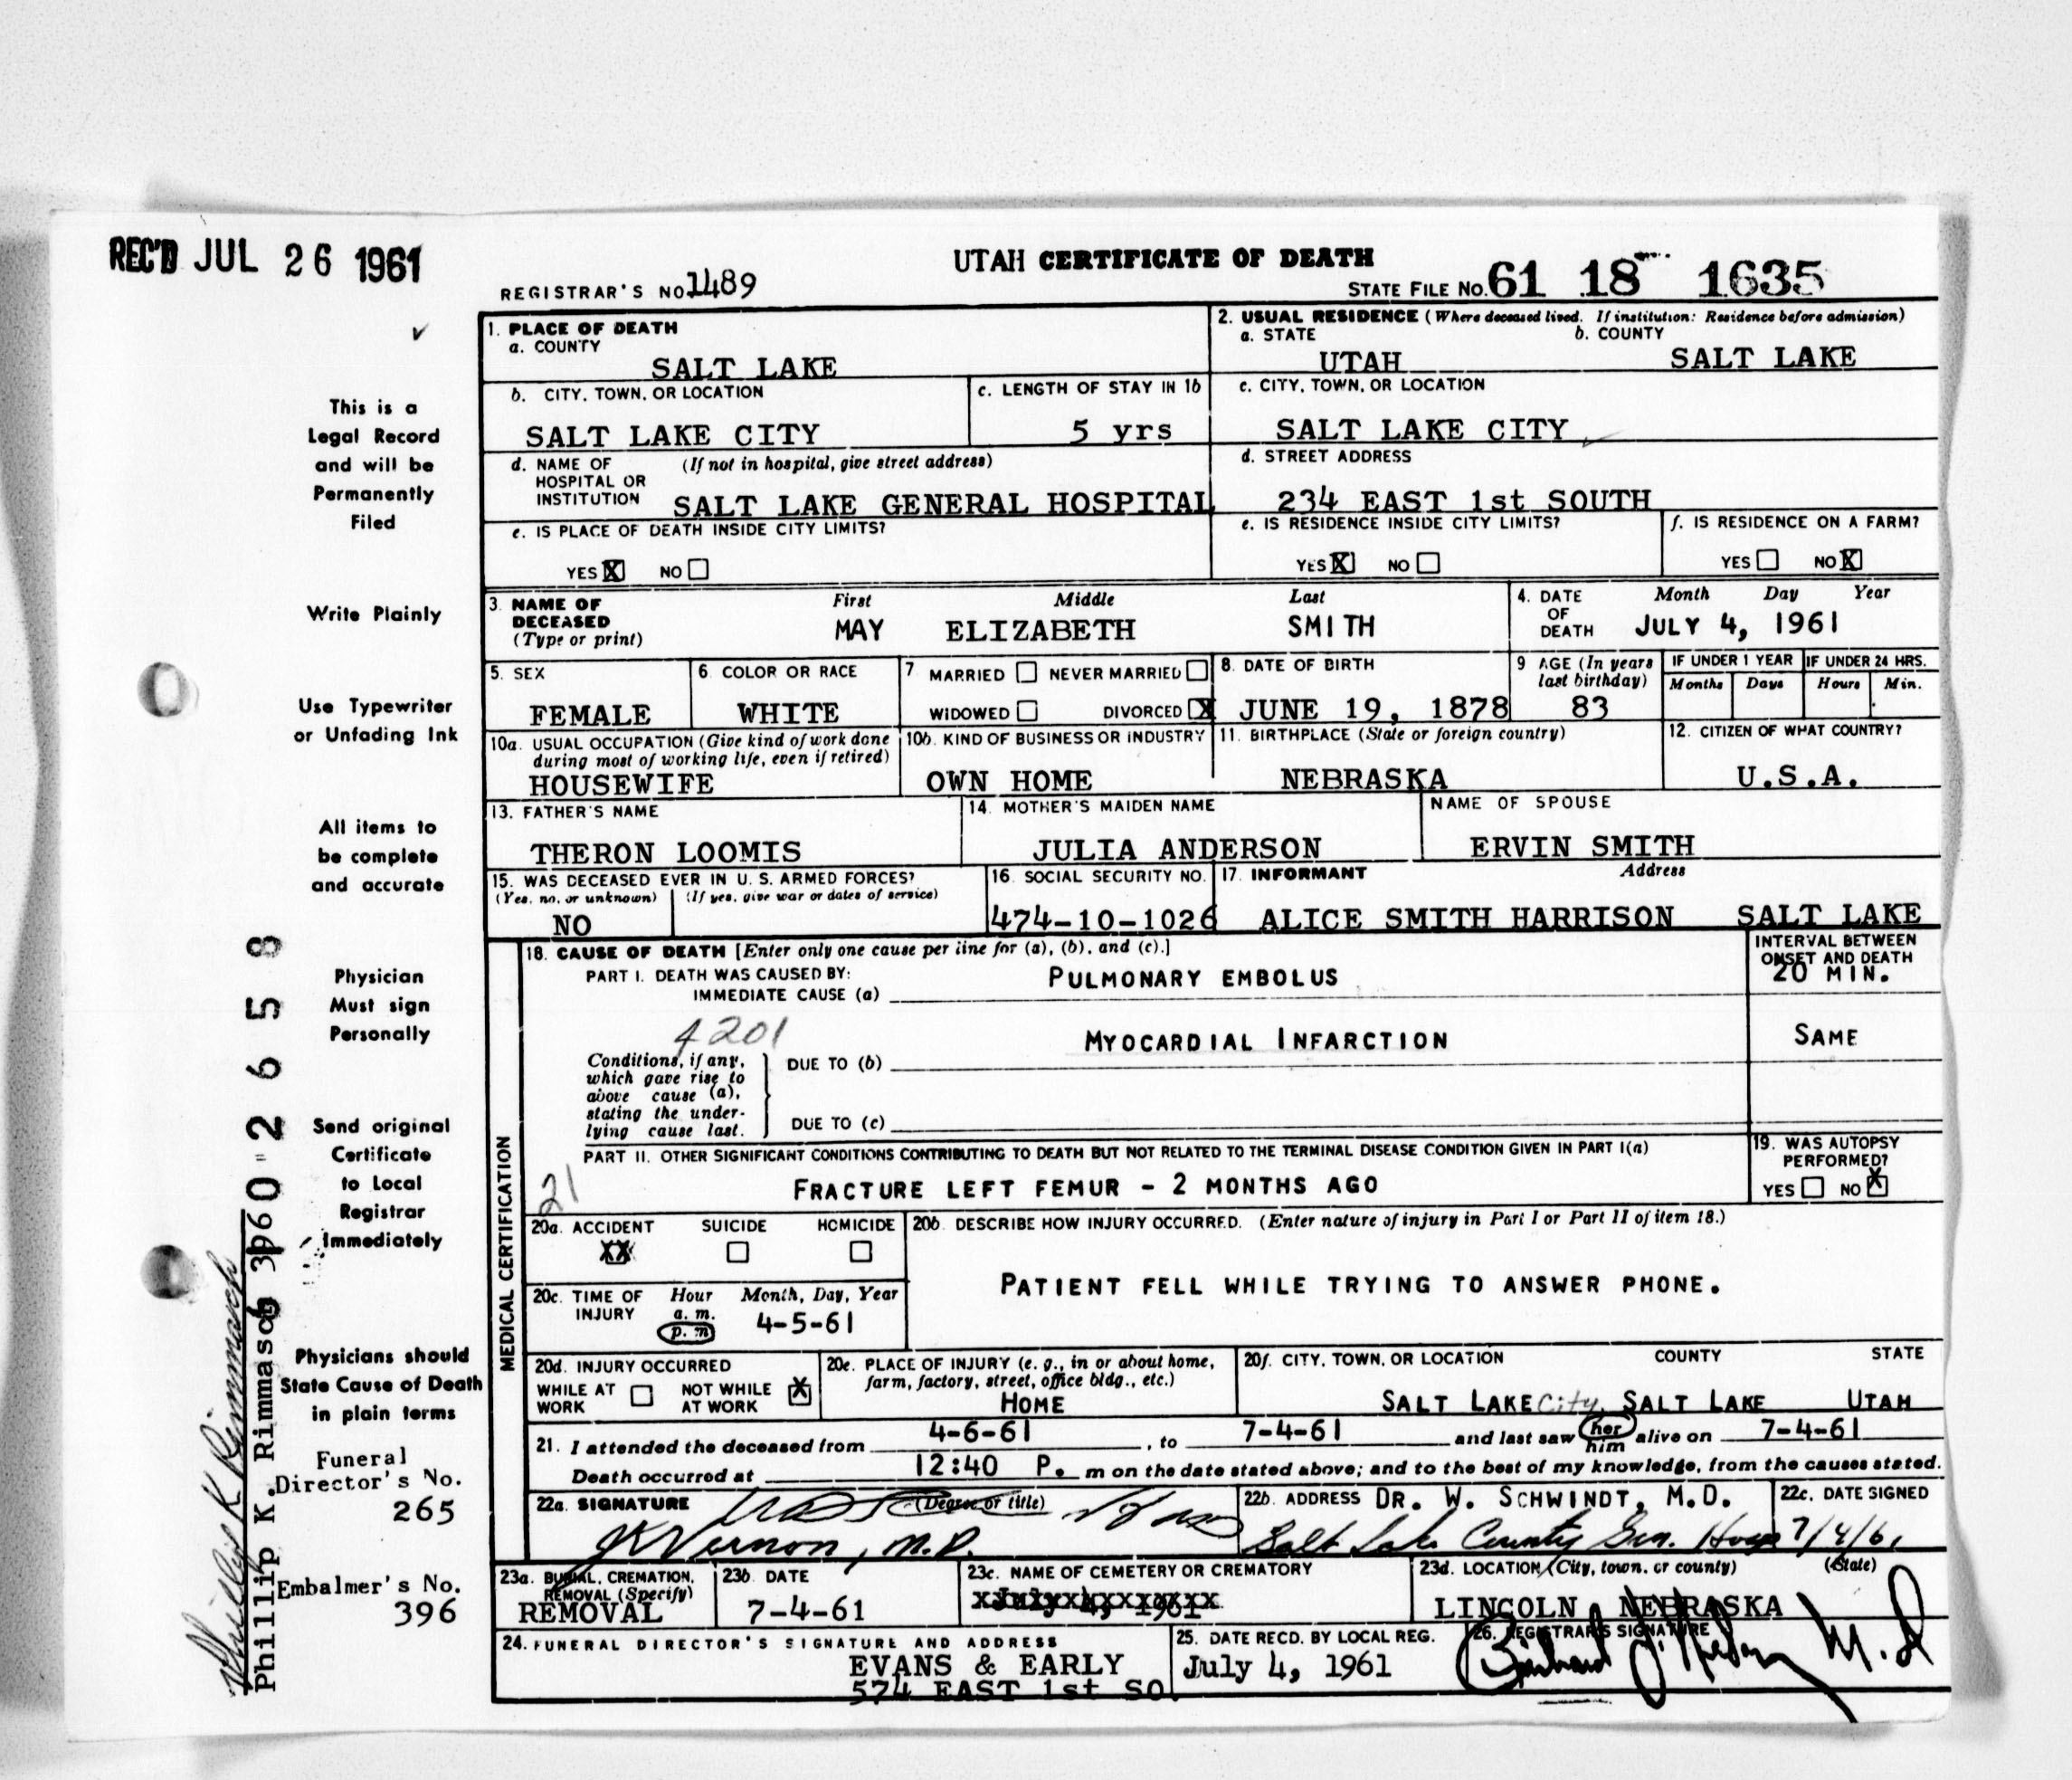 REC'D JUL 26 1961
UTAH CERTIFICATE OF DEATH
REGISTRAR'S NO. 1489
STATE FILE NO. 61 18 1635
This is a
Legal Record
and will be
Permanently
Filed
Write Plainly
Use Typewriter
or Unfading Ink
All items to
be complete
and accurate
Physician
Must sign
Personally
Send original
Certificate
to Local
Registrar
Immediately
Physicians should
State Cause of Death
in plain terms
Funeral
Director's No.
265
Embalmer's No.
396
Phillip K. Rimmasch
1. PLACE OF DEATH
a. COUNTY
SALT LAKE
2. USUAL RESIDENCE (Where deceased lived. If institution: Residence before admission)
a. STATE b. COUNTY
UTAH SALT LAKE
b. CITY, TOWN, OR LOCATION
SALT LAKE CITY
c. LENGTH OF STAY IN 1b
5 yrs
c. CITY, TOWN, OR LOCATION
SALT LAKE CITY
d. NAME OF (If not in hospital, give street address)
HOSPITAL OR
INSTITUTION SALT LAKE GENERAL HOSPITAL
d. STREET ADDRESS
234 EAST 1st SOUTH
e. IS PLACE OF DEATH INSIDE CITY LIMITS?
YES X NO
e. IS RESIDENCE INSIDE CITY LIMITS?
YES X NO
f. IS RESIDENCE ON A FARM?
YES NO X
3. NAME OF First Middle Last
DECEASED
(Type or print) MAY ELIZABETH SMITH
4. DATE Month Day Year
OF
DEATH JULY 4, 1961
5. SEX
FEMALE
6. COLOR OR RACE
WHITE
7 MARRIED NEVER MARRIED
WIDOWED DIVORCED X
8. DATE OF BIRTH
JUNE 19, 1878
9 AGE (In years
last birthday)
83
IF UNDER 1 YEAR IF UNDER 24 HRS.
Months Days Hours Min.
10a. USUAL OCCUPATION (Give kind of work done
during most of working life, even if retired)
HOUSEWIFE
10b. KIND OF BUSINESS OR INDUSTRY
OWN HOME
11. BIRTHPLACE (State or foreign country)
NEBRASKA
12. CITIZEN OF WHAT COUNTRY?
U.S.A.
13. FATHER'S NAME
THERON LOOMIS
14. MOTHER'S MAIDEN NAME
JULIA ANDERSON
NAME OF SPOUSE
ERVIN SMITH
15. WAS DECEASED EVER IN U. S. ARMED FORCES?
(Yes, no, or unknown) (If yes, give war or dates of service)
NO
16. SOCIAL SECURITY NO.
474-10-1026
17. INFORMANT Address
ALICE SMITH HARRISON SALT LAKE
MEDICAL CERTIFICATION
18. CAUSE OF DEATH [Enter only one cause per line for (a), (b), and (c).]
INTERVAL BETWEEN
ONSET AND DEATH
PART I. DEATH WAS CAUSED BY:
IMMEDIATE CAUSE (a) PULMONARY EMBOLUS 20 MIN.
4201
Conditions, if any,
which gave rise to
above cause (a),
stating the under-
lying cause last.
DUE TO (b) MYOCARDIAL INFARCTION SAME
DUE TO (c)
PART II. OTHER SIGNIFICANT CONDITIONS CONTRIBUTING TO DEATH BUT NOT RELATED TO THE TERMINAL DISEASE CONDITION GIVEN IN PART I(a)
21 FRACTURE LEFT FEMUR - 2 MONTHS AGO
19. WAS AUTOPSY
PERFORMED?
YES NO X
20a. ACCIDENT SUICIDE HOMICIDE
XX
20b. DESCRIBE HOW INJURY OCCURRED. (Enter nature of injury in Part I or Part II of item 18.)
PATIENT FELL WHILE TRYING TO ANSWER PHONE.
20c. TIME OF Hour Month, Day, Year
INJURY a. m.
p. m 4-5-61
20d. INJURY OCCURRED
WHILE AT NOT WHILE X
WORK AT WORK
20e. PLACE OF INJURY (e. g., in or about home,
farm, factory, street, office bldg., etc.)
HOME
20f. CITY, TOWN, OR LOCATION COUNTY STATE
SALT LAKE City, SALT LAKE UTAH
21. I attended the deceased from 4-6-61, to 7-4-61 and last saw her him alive on 7-4-61
Death occurred at 12:40 P. m on the date stated above; and to the best of my knowledge, from the causes stated.
22a. SIGNATURE (Degree or title)
JK Vernon, M.D.
22b. ADDRESS DR. W. SCHWINDT, M.D.
Salt Lake County Gen. Hosp
22c. DATE SIGNED
7/4/61
23a. BURIAL, CREMATION,
REMOVAL (Specify)
REMOVAL
23b. DATE
7-4-61
23c. NAME OF CEMETERY OR CREMATORY
July 4, 1961
23d. LOCATION (City, town, or county) (State)
LINCOLN, NEBRASKA
24. FUNERAL DIRECTOR'S SIGNATURE AND ADDRESS
EVANS & EARLY
574 EAST 1st SO.
25. DATE RECD. BY LOCAL REG.
July 4, 1961
26. REGISTRAR'S SIGNATURE
M. D